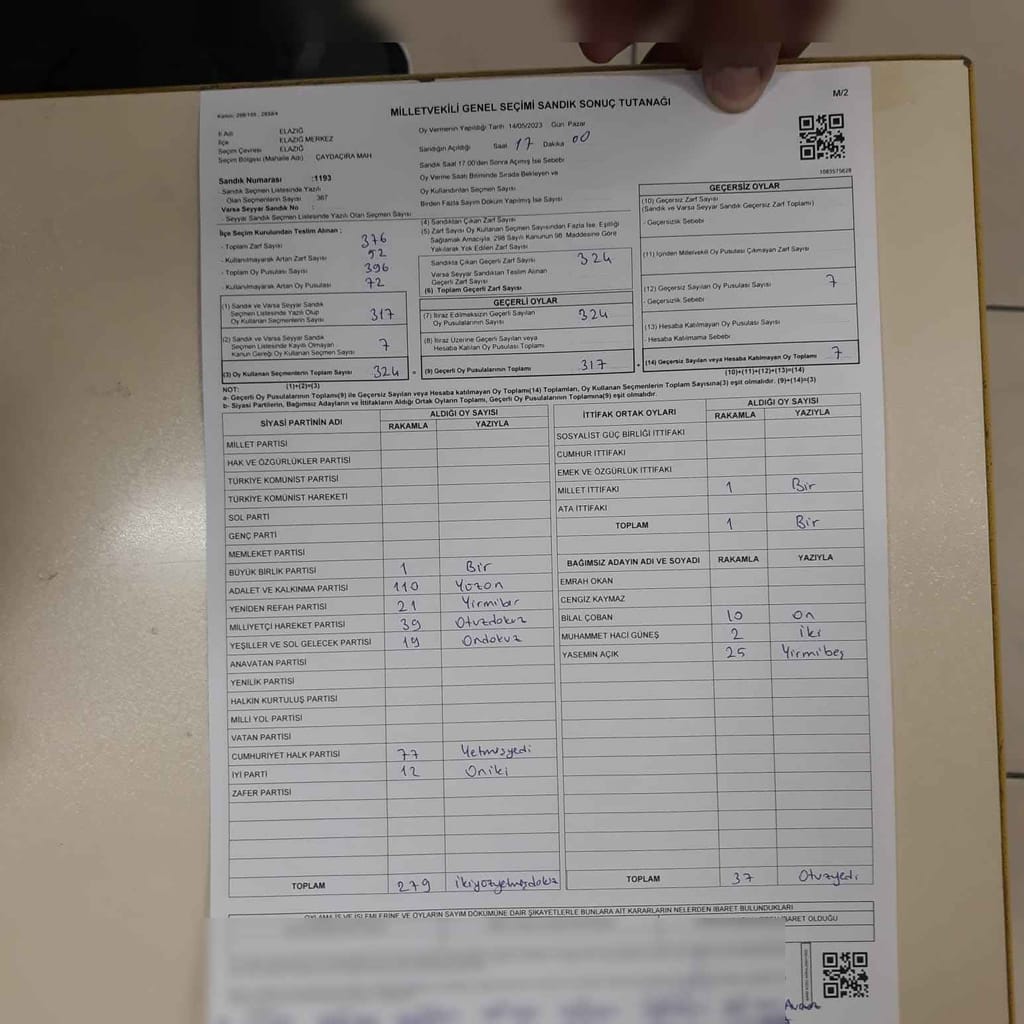 M/2
MİLLETVEKİLİ GENEL SEÇİMİ SANDIK SONUÇ TUTANAĞI
İl Adı ELAZIĞ
İlçe ELAZIĞ MERKEZ
Seçim Çevresi ELAZIĞ
Seçim Bölgesi (Mahalle Adı) ÇAYDAÇIRA MAH
Oy Vermenin Yapıldığı Tarih 14/05/2023 Gün Pazar
Sandığın Açıldığı Saat 17 Dakika 00
Sandık Saat 17.00'den Sonra Açımış İse Sebebi
Oy Verme Saati Bitiminde Sırada Bekleyen ve
Oy Kullandırılan Seçmen Sayısı
Birden Fazla Sayım Döküm Yapılmış İse Sayısı
1083575628
Sandık Numarası :1193
- Sandık Seçmen Listesinde Yazılı
Olan Seçmenlerin Sayısı 367
Varsa Seyyar Sandık No :
- Seyyar Sandık Seçmen Listesinde Yazılı Olan Seçmen Sayısı
İlçe Seçim Kurulundan Teslim Alınan ;
- Toplam Zarf Sayısı 376
- Kullanılmayarak Artan Zarf Sayısı 52
- Toplam Oy Pusulası Sayısı 396
- Kullanılmayarak Artan Oy Pusulası 72
(1) Sandık ve Varsa Seyyar Sandık
Seçmen Listesinde Yazılı Olup
Oy Kullanan Seçmenlerin Sayısı 317
(2) Sandık ve Varsa Seyyar Sandık
Seçmen Listesinde Kayıtlı Olmayan
Kanun Gereği Oy Kullanan Seçmen Sayısı 7
(3) Oy Kullanan Seçmenlerin Toplam Sayısı 324
(1)+(2)=(3)
(4) Sandıktan Çıkan Zarf Sayısı
(5) Zarf Sayısı Oy Kullanan Seçmen Sayısından Fazla İse, Eşitliği
Sağlamak Amacıyla, 298 Sayılı Kanunun 98. Maddesine Göre
Yakılarak Yok Edilen Zarf Sayısı
Sandıkta Çıkan Geçerli Zarf Sayısı 324
Varsa Seyyar Sandıktan Teslim Alınan
Geçerli Zarf Sayısı
(6) Toplam Geçerli Zarf Sayısı
GEÇERLİ OYLAR
(7) İtiraz Edilmeksizin Geçerli Sayılan
Oy Pusulalarının Sayısı 324
(8) İtiraz Üzerine Geçerli Sayılan veya
Hesaba Katılan Oy Pusulası Toplamı
(9) Geçerli Oy Pusulalarının Toplamı 317
GEÇERSİZ OYLAR
(10) Geçersiz Zarf Sayısı
(Sandık ve Varsa Seyyar Sandık Geçersiz Zarf Toplamı)
- Geçersizlik Sebebi
(11) İçinden Milletvekili Oy Pusulası Çıkmayan Zarf Sayısı
(12) Geçersiz Sayılan Oy Pusulası Sayısı 7
- Geçersizlik Sebebi
(13) Hesaba Katılmayan Oy Pusulası Sayısı
- Hesaba Katılmama Sebebi
(14) Geçersiz Sayılan veya Hesaba Katılmayan Oy Toplamı 7
(10)+(11)+(12)+(13)=(14)
NOT:
a- Geçerli Oy Pusulasının Toplamı(9) ile Geçersiz Sayılan veya Hesaba katılmayan Oy Toplamı(14) Toplamları, Oy Kullanan Seçmenlerin Toplam Sayısına(3) eşit olmalıdır. (9)+(14)=(3)
b- Siyasi Partilerin, Bağımsız Adayların ve İttifakların Aldığı Ortak Oyların Toplamı, Geçerli Oy Pusulalarının Toplamına(9) eşit olmalıdır.
SİYASİ PARTİNİN ADI ALDIĞI OY SAYISI
RAKAMLA YAZIYLA
MİLLET PARTİSİ
HAK VE ÖZGÜRLÜKLER PARTİSİ
TÜRKİYE KOMÜNİST PARTİSİ
TÜRKİYE KOMÜNİST HAREKETİ
SOL PARTİ
GENÇ PARTİ
MEMLEKET PARTİSİ
BÜYÜK BİRLİK PARTİSİ 1 Bir
ADALET VE KALKINMA PARTİSİ 110 Yüzon
YENİDEN REFAH PARTİSİ 21 Yirmibir
MİLLİYETÇİ HAREKET PARTİSİ 39 Otuzdokuz
YEŞİLLER VE SOL GELECEK PARTİSİ 19 Ondokuz
ANAVATAN PARTİSİ
YENİLİK PARTİSİ
HALKIN KURTULUŞ PARTİSİ
MİLLİ YOL PARTİSİ
VATAN PARTİSİ
CUMHURİYET HALK PARTİSİ 77 Yetmişyedi
İYİ PARTİ 12 Oniki
ZAFER PARTİSİ
TOPLAM 279 ikiyüzyetmişdokuz
İTTİFAK ORTAK OYLARI ALDIĞI OY SAYISI
RAKAMLA YAZIYLA
SOSYALİST GÜÇ BİRLİĞİ İTTİFAKI
CUMHUR İTTİFAKI
EMEK VE ÖZGÜRLÜK İTTİFAKI
MİLLET İTTİFAKI 1 Bir
ATA İTTİFAKI
TOPLAM 1 Bir
BAĞIMSIZ ADAYIN ADI VE SOYADI RAKAMLA YAZIYLA
EMRAH OKAN
CENGİZ KAYMAZ
BİLAL ÇOBAN 10 on
MUHAMMET HACI GÜNEŞ 2 iki
YASEMİN AÇIK 25 Yirmibeş
TOPLAM 37 Otuzyedi
OYLAMA İŞ VE İŞLEMLERİNE VE OYLARIN SAYIM DÖKÜMÜNE DAİR ŞİKAYETLERLE BUNLARA AİT KARARLARIN NELERDEN İBARET BULUNDUKLARI
İBARET OLDUĞU